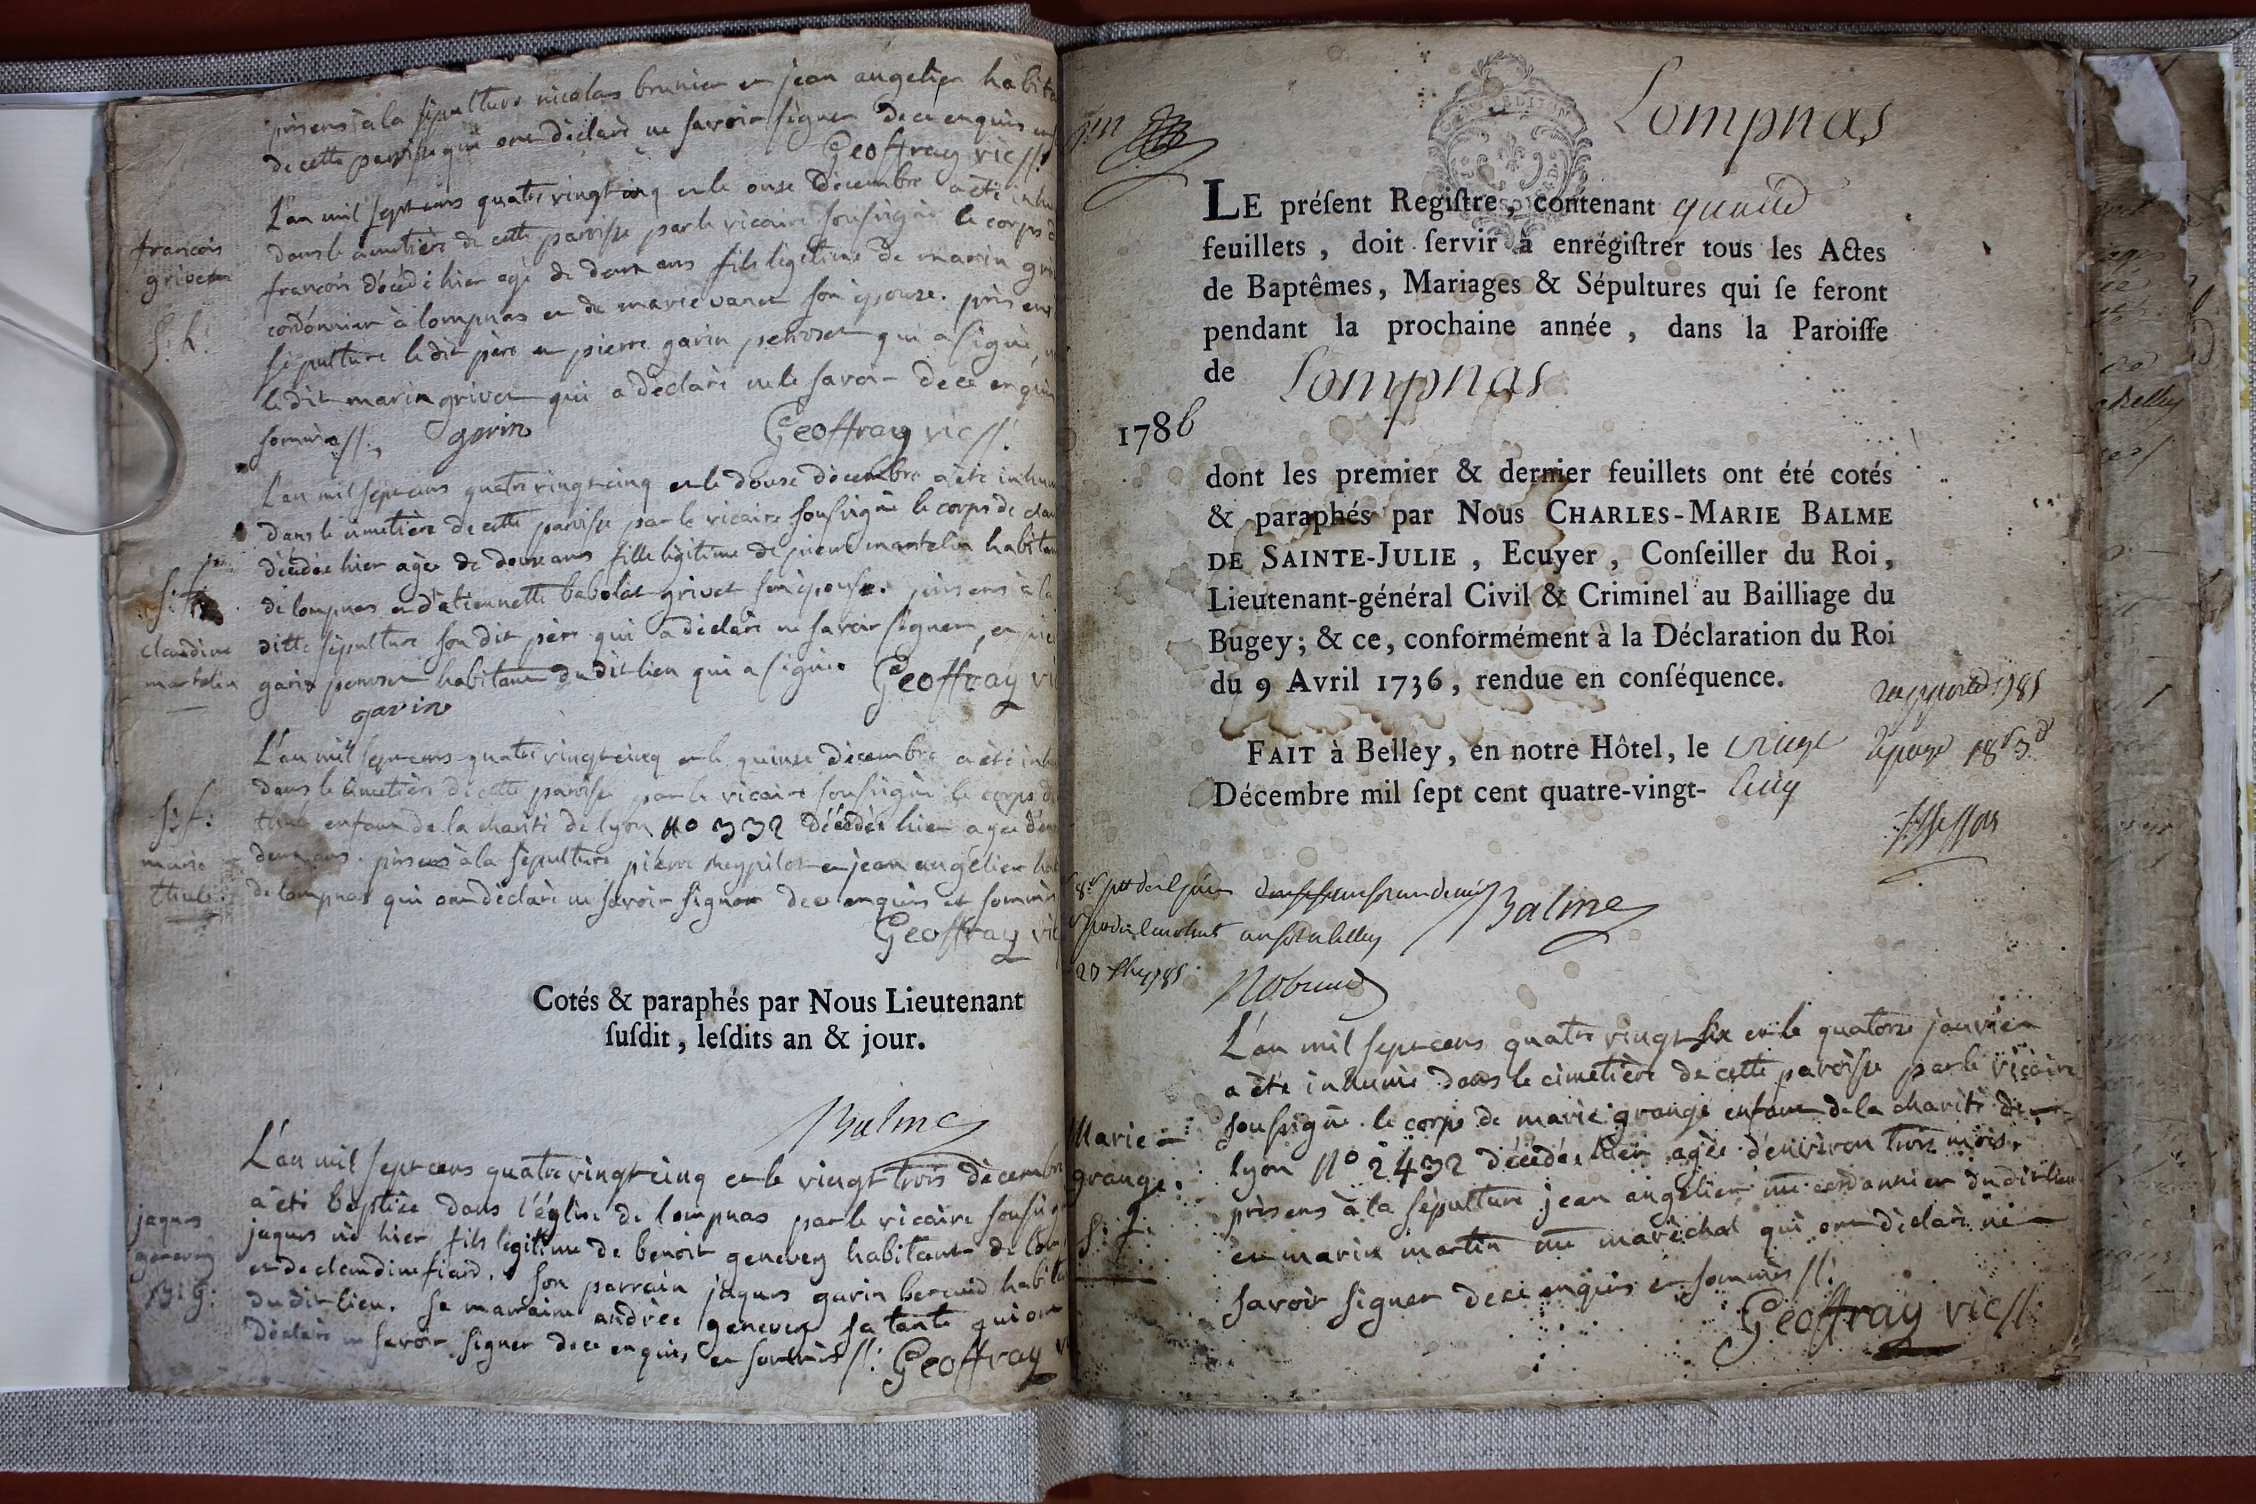 présens à la sépulture nicolas brunier et jean angelier habita
de cette paroisse qui ont déclaré ne savoir signer de ce enquis
Geoffray vic//.
L'an mil sept cens quatre vingt cinq et le onse décembre a été inhu
dans le cimetière de cette paroisse par le vicaire soussigné le corps d
francois
grivet
françois décédé hier agé de deux ans fils légitime de marin gri
cordonnier à lompnas et de marie vanet son épouse. présens
s: h:
sépulture le dit père et pierre garin perroset qui a signé,
le dit marin grivet qui a déclaré ne le savoir de ce enquis
sommés //. garin Geoffray vic//.
L'an mil sept cens quatre vingt cinq et le douse décembre a été inhum
dans le cimetière de cette paroisse par le vicaire soussigné le corps de clau
décédée hier agée de douse ans fille légitime de pierre martelin habitan
s: f:
de lompnas et d'etiennette babolat grivet son épouse. présens à la
claudine
martelin
ditte sépulture son dit père qui a déclaré ne savoir signer, et pie
garin perroset habitant du dit lieu qui a signé. Geoffray vi
garin
L'an mil sept cens quatre vingt cinq et le quinse décembre a été inh
dans le cimetière de cette paroisse par le vicaire soussigné le corps d
s: f:
enfant de la charité de lyon N° 332 décédée hier agée d'en
marie
deux ans. présens à la sépulture pierre et jean angélier hab
de lompnas qui ont déclaré ne savoir signer de ce enquis et sommés
Geoffray vic
Cotés & paraphés par Nous Lieutenant
ſuſdit, leſdits an & jour.
Balme
L'an mil sept cens quatre vingt cinq et le vingt trois décembre
a été baptisé dans l'église de lompnas par le vicaire soussig
jaques
genevey
jaques né hier fils légitime de benoit genevey habitant de lom
et de claudine fiard. son parrain jaques garin beraud habita
du dit lieu. sa marraine andrée genevey sa tante qui ont
déclaré ne savoir signer de ce enquis et sommés //. Geoffray v
Lompnas
LE préſent Regiſtre, contenant
feuillets, doit ſervir à enrégiſtrer tous les Actes
de Baptêmes, Mariages & Sépultures qui ſe feront
pendant la prochaine année, dans la Paroiſſe
de Lompnas
1786
dont les premier & dernier feuillets ont été cotés
& paraphés par Nous CHARLES-MARIE BALME
DE SAINTE-JULIE, Ecuyer, Conſeiller du Roi,
Lieutenant-général Civil & Criminel au Bailliage du
Bugey; & ce, conformément à la Déclaration du Roi
du 9 Avril 1736, rendue en conſéquence.
FAIT à Belley, en notre Hôtel, le
Décembre mil ſept cent quatre-vingt- cinq
Balme
L'an mil sept cens quatre vingt six et le quatorse janvier
a été inhumé dans le cimetière de cette paroisse par le vicaire
Marie
grange.
s: f:
soussigné le corps de marie grange enfant de la charité de
lyon N° 2432 décédée hier agée d'environ trois mois.
présens à la sépulture jean angélier me cordonnier du dit lieu
et marin martin me maréchal qui ont déclaré ne
savoir signer de ce enquis et sommés //.
Geoffray vic//.